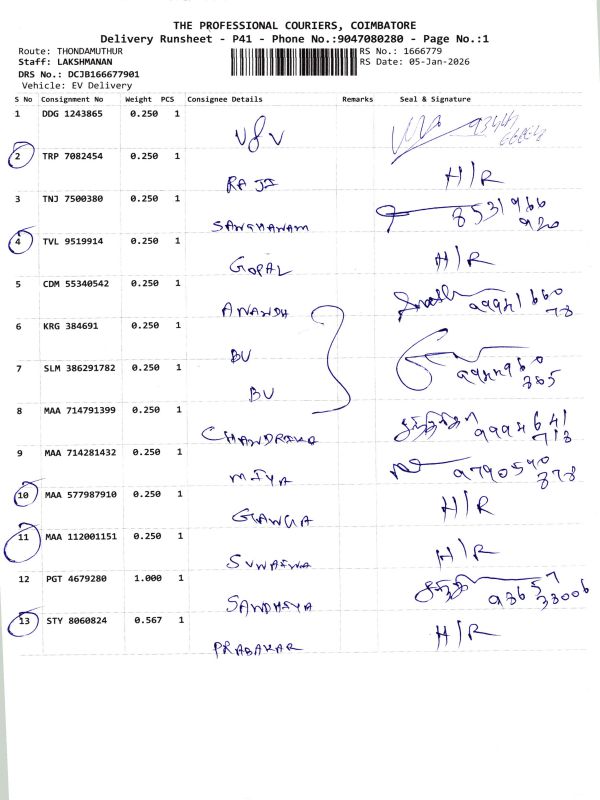 THE PROFESSIONAL COURIERS, COIMBATORE
Delivery Runsheet - P41 - Phone No.:9047080280 - Page No.:1
Route: THONDAMUTHUR RS No.: 1666779
Staff: LAKSHMANAN RS Date: 05-Jan-2026
DRS No.: DCJB166677901
Vehicle: EV Delivery
S No Consignment No Weight PCS Consignee Details Remarks Seal & Signature
1 DDG 1243865 0.250 1
2 TRP 7082454 0.250 1
RAJI H/R
3 TNJ 7500380 0.250 1
8531966
920
4 TVL 9519914 0.250 1
GOPAL H/R
5 CDM 55340542 0.250 1
ANANDH
6 KRG 384691 0.250 1
BU
7 SLM 386291782 0.250 1
BU
8 MAA 714791399 0.250 1
CHANDRIKA 9994641
713
9 MAA 714281432 0.250 1
MIYA 9790590
878
10 MAA 577987910 0.250 1
GANGA H/R
11 MAA 112001151 0.250 1
H/R
12 PGT 4679280 1.000 1
SANDHIYA 93657
33006
13 STY 8060824 0.567 1
PRABAKAR H/R